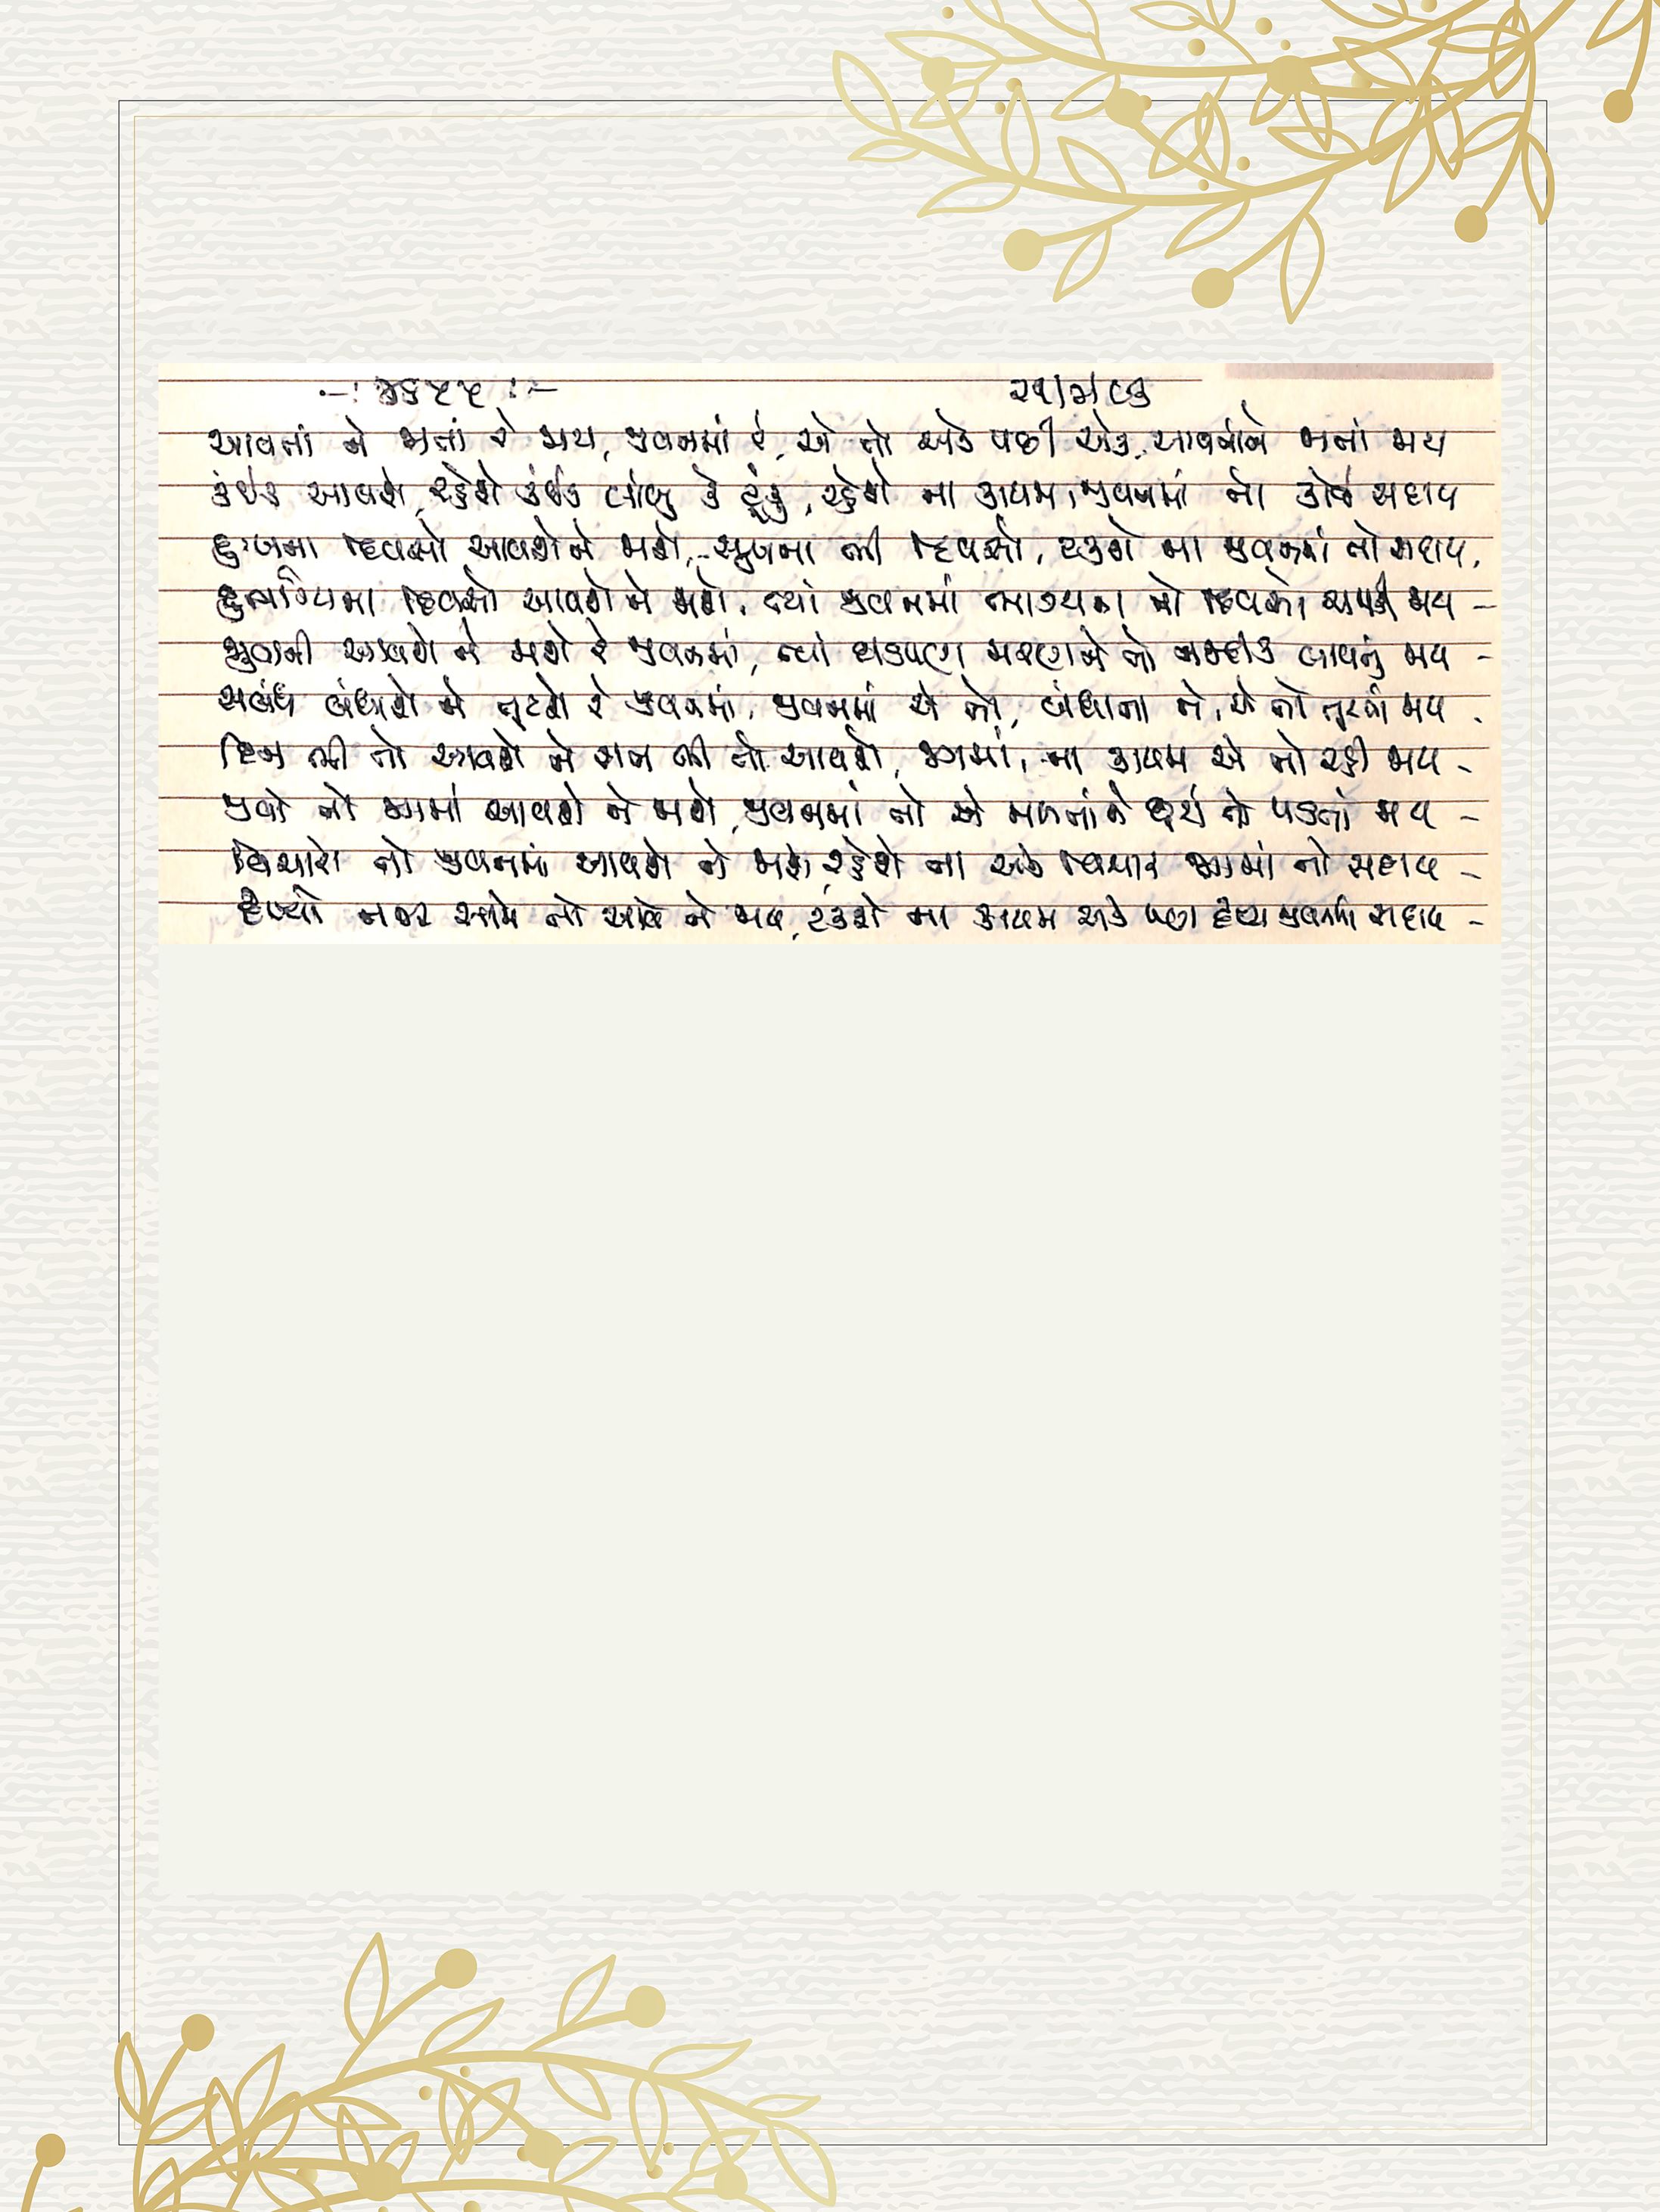 આવતાં ને જાતાં રે જાય, જીવનમાં રે, એ તો એક પછી એક, આવતાંને જાતાં જાય
કંઈક આવશે, રહેશે કંઈક લાંબુ કે ટૂંકું, રહેશે ના કાયમ, જીવનમાં તો કોઈ સદાય
દુઃખના દિવસો આવશે ને જાશે, સુખના ભી દિવસો, રહેશે ના જીવનમાં તો સદાય.
દુર્ભાગ્યના દિવસો આવશે ને જાશે, ત્યાં જીવનમાં ભાગ્યના તો દિવસો જાય –
જુવાની આવશે ને જાશે રે જીવનમાં, ત્યાં ઘડપણ મરણને તો નજદીક લાવતું જાય –
સબંધ બંધાશે ને તૂટશે રે જીવનમાં, જીવનમાં એ તો, બંધાતા ને, એ તો તૂટતાં જાય .
દિન ભી તો આવશે ને રાત ભી તો આવશે, જગમાં, ના કાયમ એ તો રહી જાય -
જીવો તો જગમાં આવશે ને જાશે, જીવનમાં તો એ મળતાંને છૂટાં તો પડતાં જાય –
વિચારો તો જીવનમાં આવશે ને જાશે, રહેશે ના એક વિચાર જગમાં તો સદાય –
દૃશ્યો નજર સામે તો આવે ને જાય, રહેશે ના કાયમ એક પણ દૃશ્ય જીવનમાં સદાય –